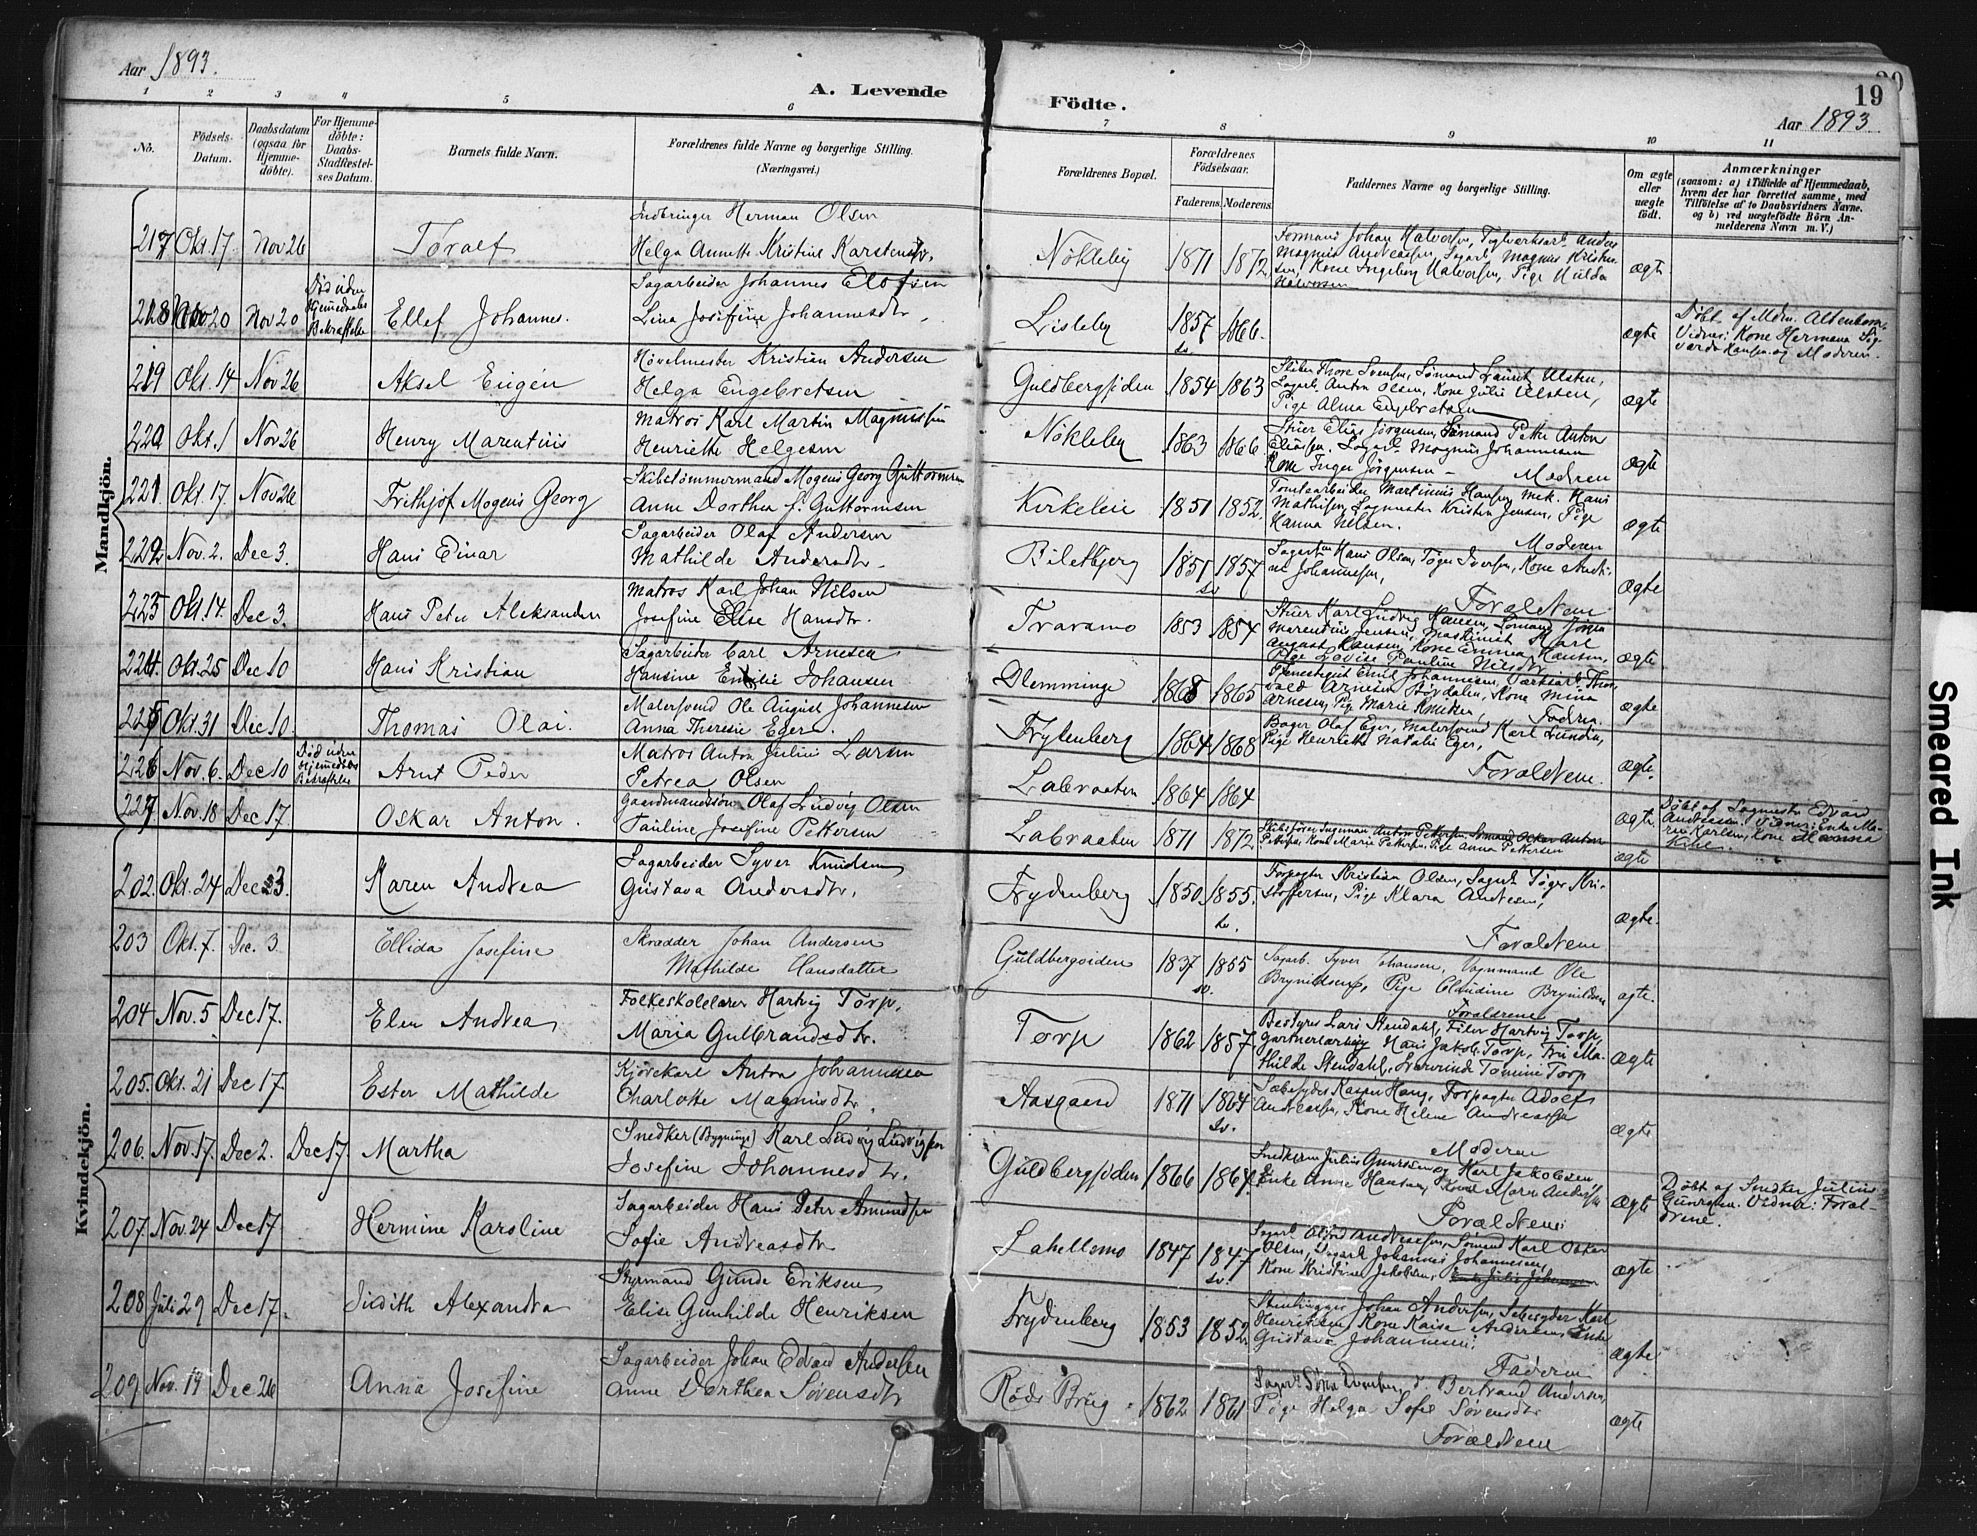 Aar 1893.
A. Levende Födte.
19
Aar 1893
1 2 3 4 5 6 7 8 9 10 11
No.
Födsels-Datum.
Daabsdatum (ogsaa for Hjemme-döbte).
For Hjemme-döbte: Daabs-Stadfæstel-ses Datum.
Barnets fulde Navn.
Forældrenes fulde Navne og borgerlige Stilling. (Næringsvei.)
Forældrenes Bopæl.
Forældrenes Födselsaar.
Faderens. Moderens.
Faddernes Navne og borgerlige Stilling.
Om ægte eller uægte födt.
Anmærkninger
(saasom: a) i Tilfælde af Hjemmedaab,
hvem der har forrettet samme, med
Tilföielse af to Daabsvidners Navne.
og b) ved uægtefödte Börn An-
melderens Navn m. V.)
Mandkjön.
217 Okt. 17 Nov 26 Toralf
Herman Olsen
Helga Annette Kristine Karstensdtr.
Nökleby 1871 1872
Formand Johan Halvorsen,
ægte
218 Nov 20 Nov 20 Död uden Hjemmedaabs Bekræftelse Ellef Johannes.
Sagarbeider Johannes Elofsen
Lina Josefine Johannesdtr.
Lisleby 1857 sv. 1866.
ægte
Döbt af Mdm. Altenborn, Vidner: Kone Hermana Sigvarda Hansen og Moderen.
219 Okt. 14 Nov 26 Aksel Eugén
Hövelmester Kristian Andersen
Helga Engebretsen
Guldbergsiden 1854 1863
Thore Svensen, Sömand Laurits Ulsten,
Sagarb. Anton Olsen, Kone Julie Ulsten,
Pige Alma Engebretsen
ægte
220 Okt. 1 Nov 26 Henry Marentius
Matros Karl Martin Magnussen
Henriette Helgesen
Nökleby 1863 1866.
Stuer Elias Jörgensen, Sömand Petter Anton
Eliassen, Sagarb. Magnus Johannesen
Kone Inger Jörgensen - Moderen
ægte
221 Okt. 17 Nov 26 Frithjof Mogens Georg
Skibstömmermand Mogens Georg Guttormsen
Anne Dorthea f. Guttormsen
Kirkeleie 1851 1852.
Tomtearbeider Martinius Hansen, Mek. Hans
Mathisen, Sagmester Kristen Jensen, Pige
Hanna Nilsen. Moderen
ægte
222 Nov. 2. Dec 3. Hans Einar
Sagarbeider Olaf Andersen
Mathilde Andersdtr.
Biletbjerg 1851 sv 1857
Hans Olsen, Töger Iversen, Kone
Johannesen, Forældrene
ægte
223 Okt. 14. Dec 3. Hans Peter Aleksander
Matros Karl Johan Nilsen
Josefine Elise Hansdtr.
Traramo 1853 1854
Stuer Karl Ludvig Hansen, Sömand Johan
Marentius Jensen, Maskinist Karl
August Hansen, Kone Emma Hansen,
Pige Lovise Pauline Nilsdtr
ægte
224. Okt. 25 Dec 10 Hans Kristian
Sagarbeider Carl Arnesen
Hansine Emilie Johansen
Glemminge 1868 1865
Emil Johannesen,
Arnesen, Kone Mina
Arnesen, Pige Marie Fadren.
ægte
225 Okt. 31 Dec 10. Thomas Olai.
Malersvend Ole August Johannesen
Anna Theresie Eger.
Frydenberg 1864 1868
Bager Olaf Eger, Malersvend Karl Lundin,
Pige Henriette Natalie Eger,
Forældrene.
ægte.
226 Nov. 6. Dec 10 Död uden Hjemmedaabs Bekræftelse Arnt Peder
Matros Anton Julius Larsen
Petrea Olsen
Labraaten 1864 1864
ægte
Döbt af Sagmester Edvard Andreasen, Vidner: Enke Maren Karlsen, Kone Hanna
227 Nov. 18 Dec 17. Oskar Anton.
Gaardmandssön Olaf Ludvig Olsen
Pauline Josefine Pettersen
Labraaten 1871 1872
Skibsförer Ingeman Anton Pettersen, Sömand Oskar Anton
Pettersen, Kone Marie Pettersen, Pige Anna Pettersen
ægte
Kvindekjön.
202. Okt. 24 Dec 3. Karen Andrea
Sagarbeider Syver Knudsen
Gustava Andersdtr.
Frydenberg 1850. 1855. sv.
Forpagter Kristian Olsen, Sagarb. Töger Kri-
stoffersen, Pige Klara Andresen,
Forældrene
ægte.
203 Okt. 7. Dec. 3. Ellida Josefine
Skrædder Johan Andersen
Mathilde Hansdatter
Guldbergsiden 1837 sv. 1855
Sagarb. Syver Johansen, Vognmand Ole
Brynildsen, Pige Claudine Brynildsen
Forældrene
ægte.
204 Nov. 5 Dec 17. Elen Andrea
Folkeskolelærer Hartvig Torp.
Maria Gulbrandsdtr.
Torp 1862 1857
Bestyrer Lars Stendahl, Filer Hartvig Torp,
Gartnerlærling Hans Jakob Torp, Fru Ma-
thilde Stendahl, Tomine Torp
ægte
205. Okt. 21 Dec 17. Ester Mathilde
Kjörekarl Anton Johannesen
Charlotte Magnusdtr.
Aasgaard 1871 1864 sv.
Kasper Haug, Forpagter Adolf
Andreassen, Kone Helene Andreassen
Moderen
ægte
206. Nov. 17. Dec 2. Dec 17 Martha
Snedker (Bygnings) Karl Ludvig Ludvigsen
Josefine Johannesdtr.
Guldbergsiden 1866 1864
Snedkerne Julius Gunersen og Karl Jakobsen,
Enke Anne Hansen, Kone Maren
Forældrene
ægte
Döbt af Snedker Julius Gunersen. Vidner: Forældrene.
207. Nov. 24 Dec 17. Hermine Karoline
Sagarbeider Hans Peter Amundsen
Sofie Andreasdtr
Lahellemo 1847 1847 sv.
Andreassen, Sömand Karl Oskar
Olsen, Sagarb. Johannes Johannesen,
Kone Kristine Jakobsen,
ægte
208 Juli 29 Dec 17. Judith Alexandra
Styrmand Gunde Eriksen
Elise Gunhilde Henriksen
Frydenberg 1853 1852
Stenhugger Johan Andersen, Karl
Henriksen, Kone Kaisa Andersen, Enke
Gustava Johannesen,
Faderen
ægte
209 Nov. 19 Dec 26 Anna Josefine
Sagarbeider Johan Edvard Andersen
Anne Dorthea Sörensdtr
Röds Brug. 1862 1861
Bertrand Andersen,
Pige Helga Sofie Sörensdtr
Forældrene
ægte
Smeared Ink